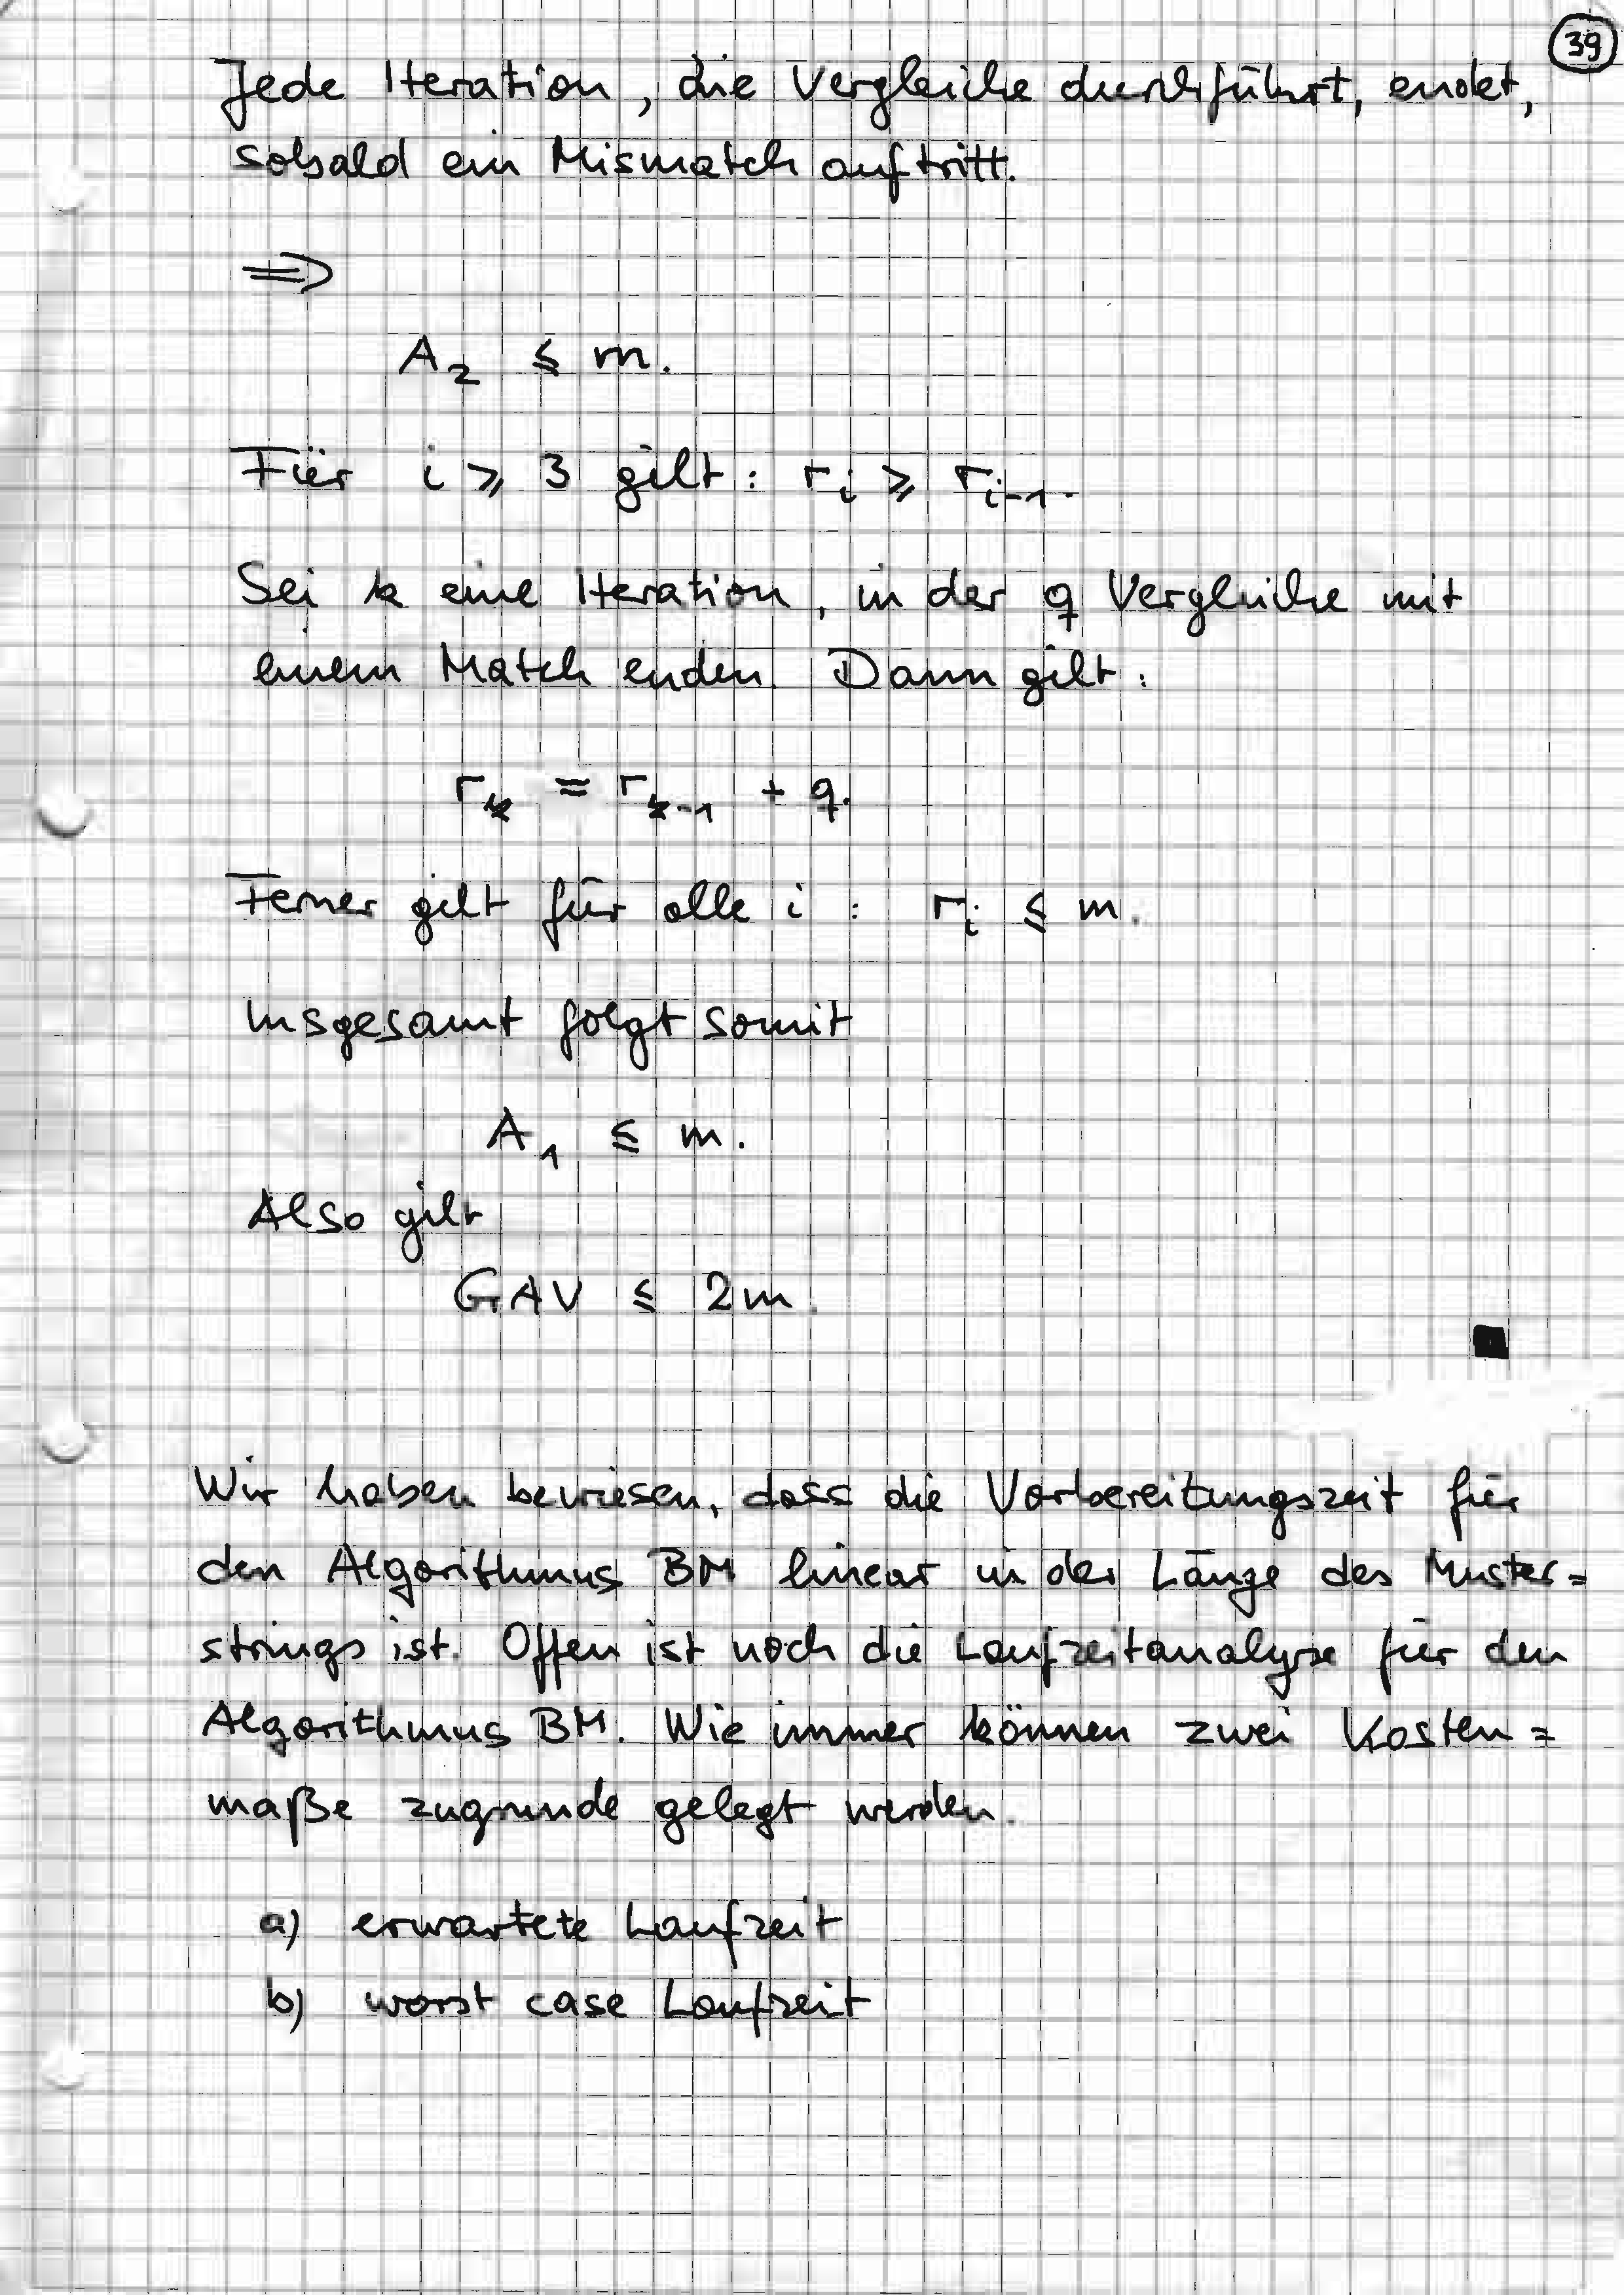 39
Jede Iteration, die Vergleiche durchführt, endet,
sobald ein Mismatch auftritt.
⇒
A₂ ≤ m.
Für i ≥ 3 gilt: rᵢ ≥ rᵢ₋₁.
Sei k eine Iteration, in der q Vergleiche mit
einem Match enden. Dann gilt:
rₖ = rₖ₋₁ + q.
Ferner gilt für alle i : rᵢ ≤ m.
Insgesamt folgt somit
A₁ ≤ m.
Also gilt
GAV ≤ 2m.
■
Wir haben bewiesen, dass die Vorbereitungszeit für
den Algorithmus BM linear in der Länge des Muster=
strings ist. Offen ist noch die Laufzeitanalyse für den
Algorithmus BM. Wie immer können zwei Kosten=
maße zugrunde gelegt werden.
a) erwartete Laufzeit
b) worst case Laufzeit